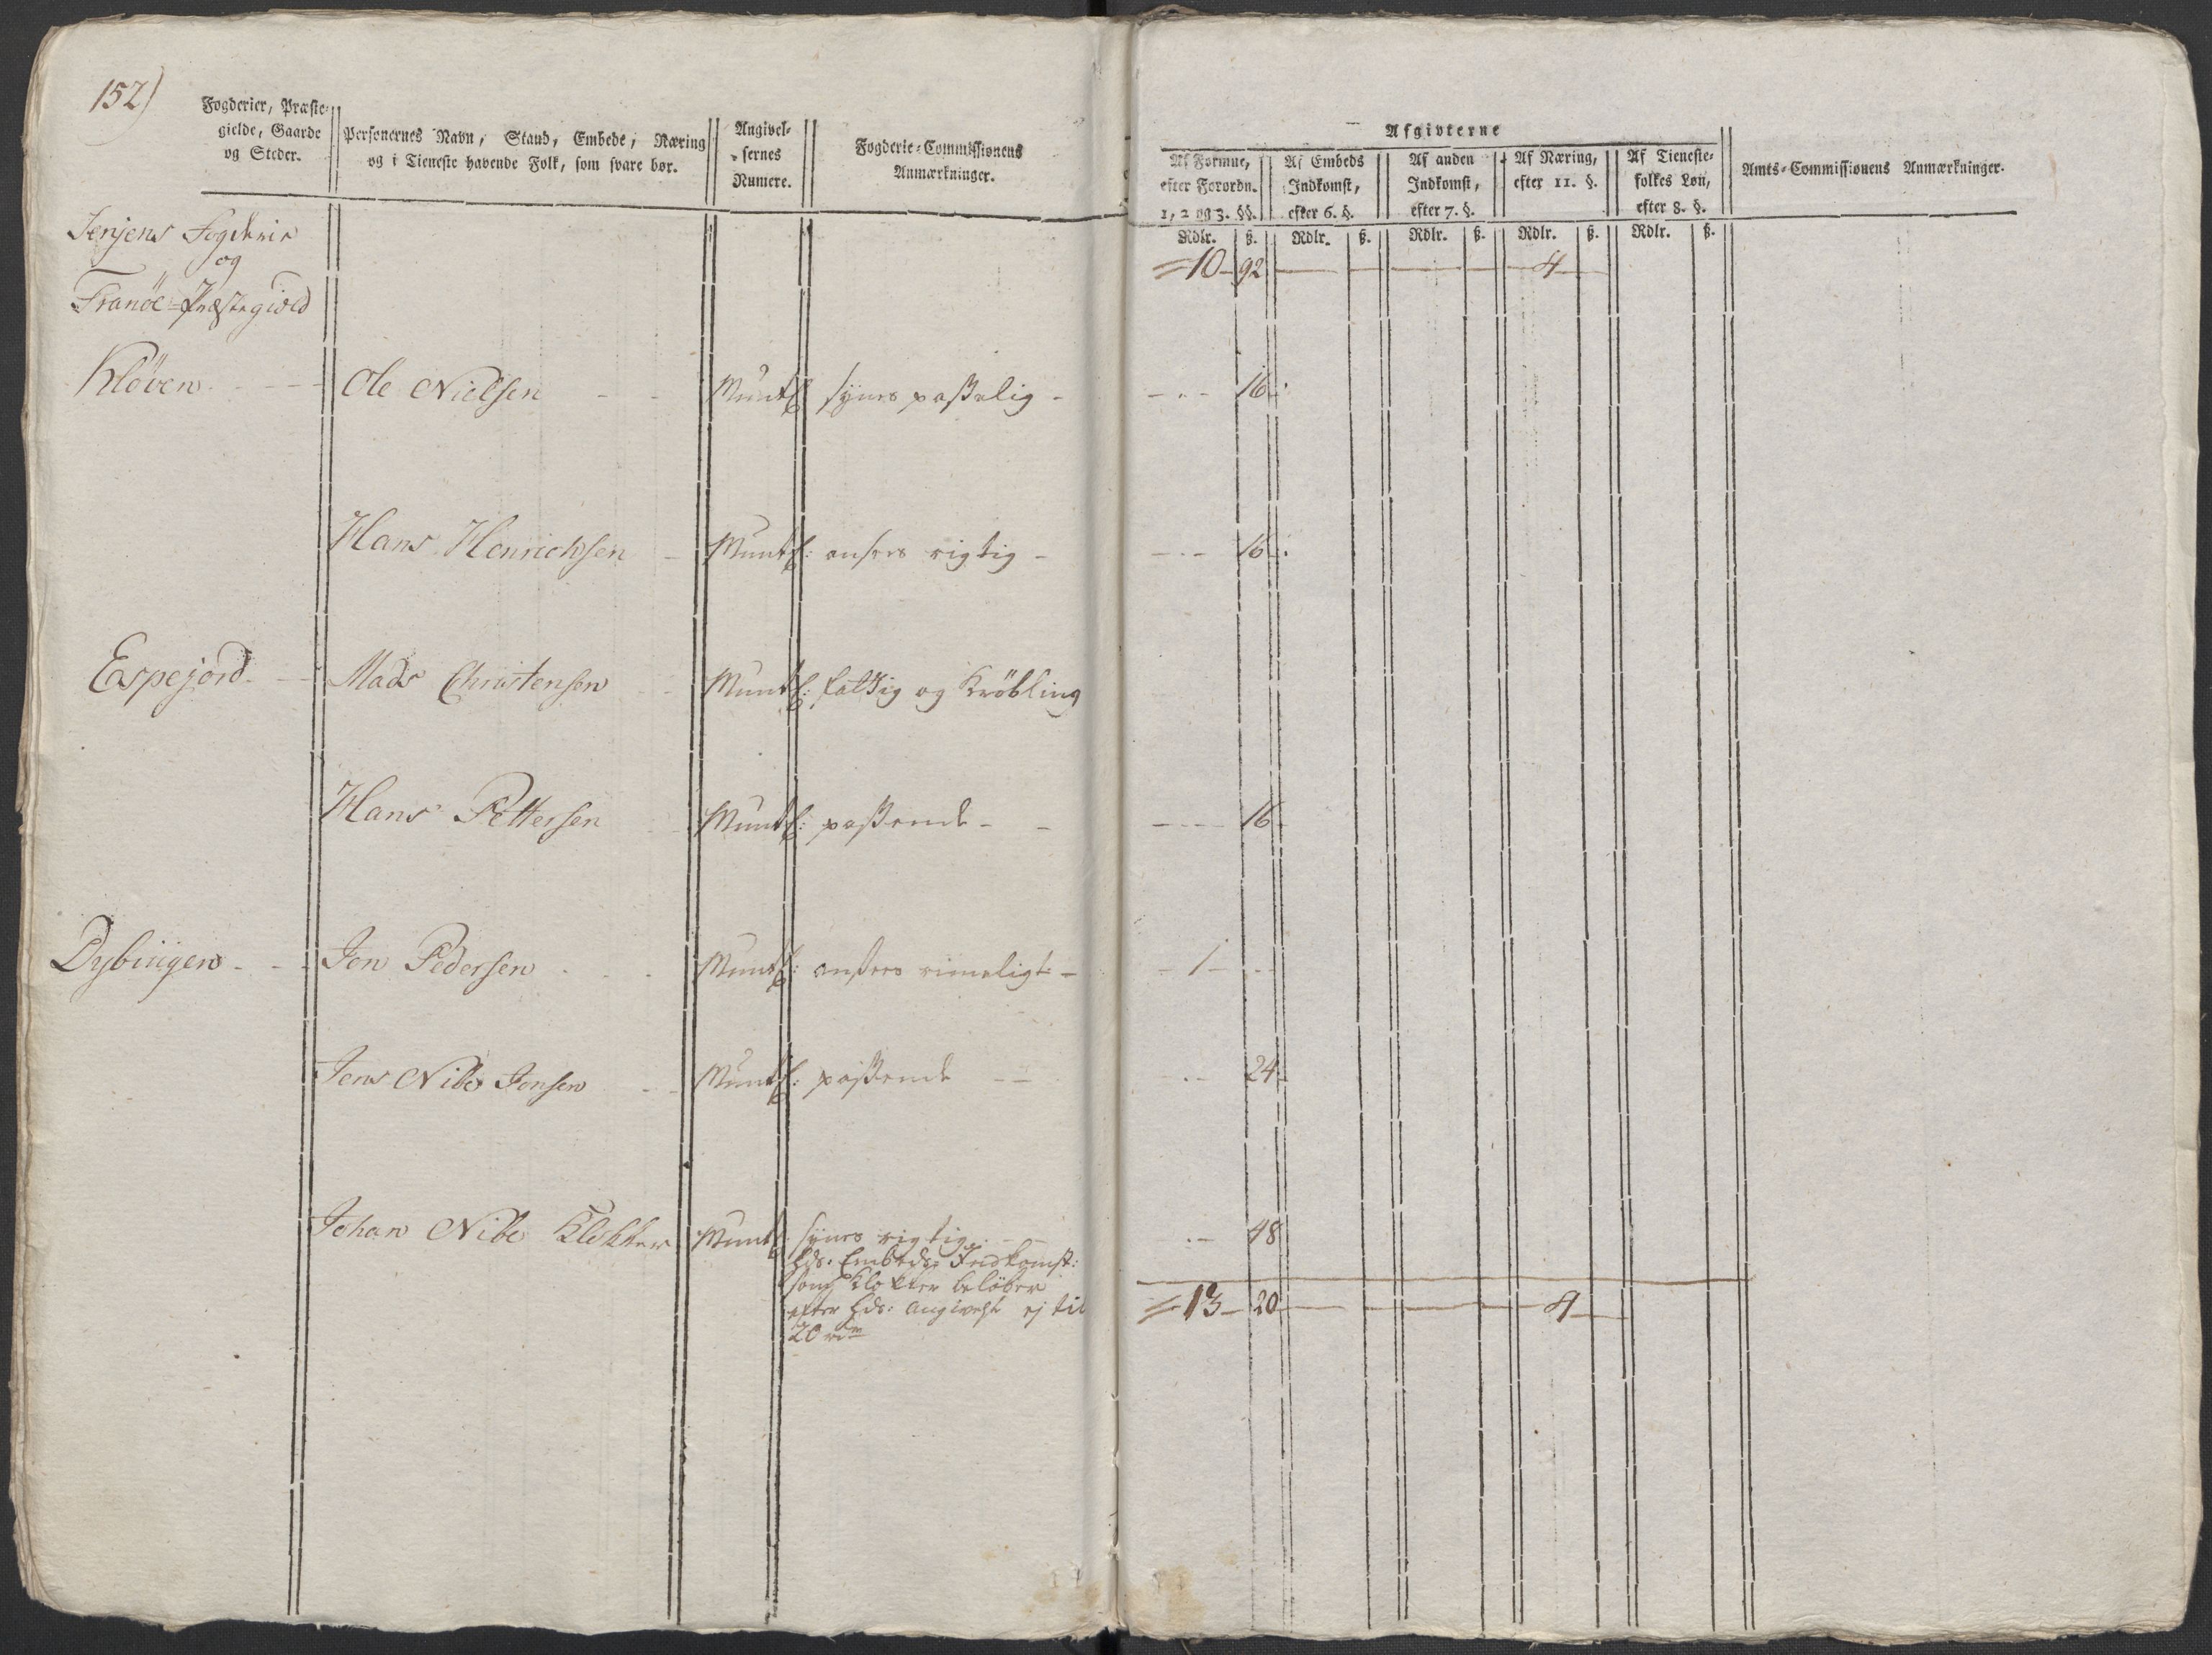 152)
Fogderier, Præste-
gielde, Gaarde
og Steder.
Personernes Navn, Stand, Embede, Næring
og i Tieneste havende Folk, som svare bør.
Angivel-
sernes
Numere.
Fogderie-Commissionens
Anmærkninger.
Afgivterne
Af Formue,
efter Forordn.
1, 2 og 3. §§.
Af Embeds
Indkomst,
efter 6. §.
Af anden
Indkomst,
efter 7. §.
Af Næring,
efter 11. §.
Af Tieneste-
folkes Løn,
efter 8. §.
Amts-Commissionens Anmærkninger.
Rdlr. ß. Rdlr. ß. Rdlr. ß. Rdlr. ß. Rdlr. ß.
Senjens Fogderie
og
Tranöe-Præstegield
10 - 92 - 4
Klöven - Ole Nielsen - Muntl synes passelig - 16
Hans Henrichsen - Muntl: ansees rigtig - 16
Espejord - Mads Christensen - Muntl: fattig og Kröbling
Hans Pettersen - Muntl: passende - 16
Dybingen - Jon Pedersen - Muntl: ansees rimeligt - 1
Jens Nibe Jensen - Muntl: passende - 24
Johan Nibe Klokker Muntl synes rigtig - 48
hds: Embeds: Indkomst:
som Klokker beløber
efter hds: angivelse ej til
20 rd
13 - 20 - 4